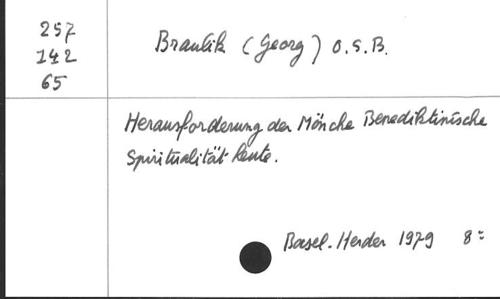 257
142
65
Braulik (Georg) O.S.B.
Herausforderung der Mönche Benediktinische
Spiritualität heute.
Basel. Herder 1979 8º